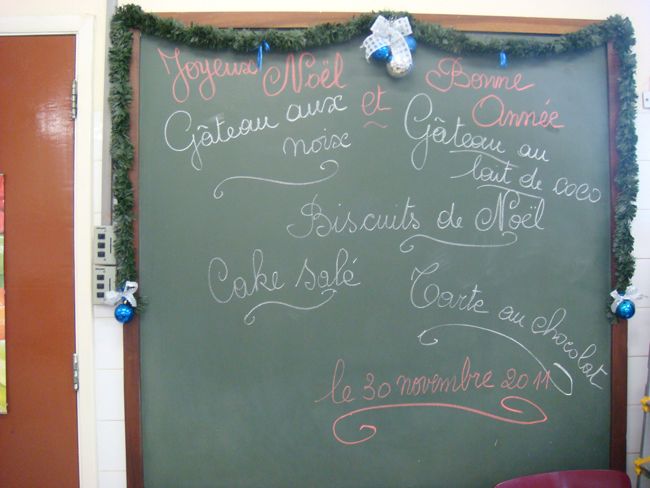 Joyeux Noël et Bonne Année
Gâteau aux noix
Gâteau au lait de coco
Biscuits de Noël
Cake salé
Tarte au chocolat
le 30 novembre 2011